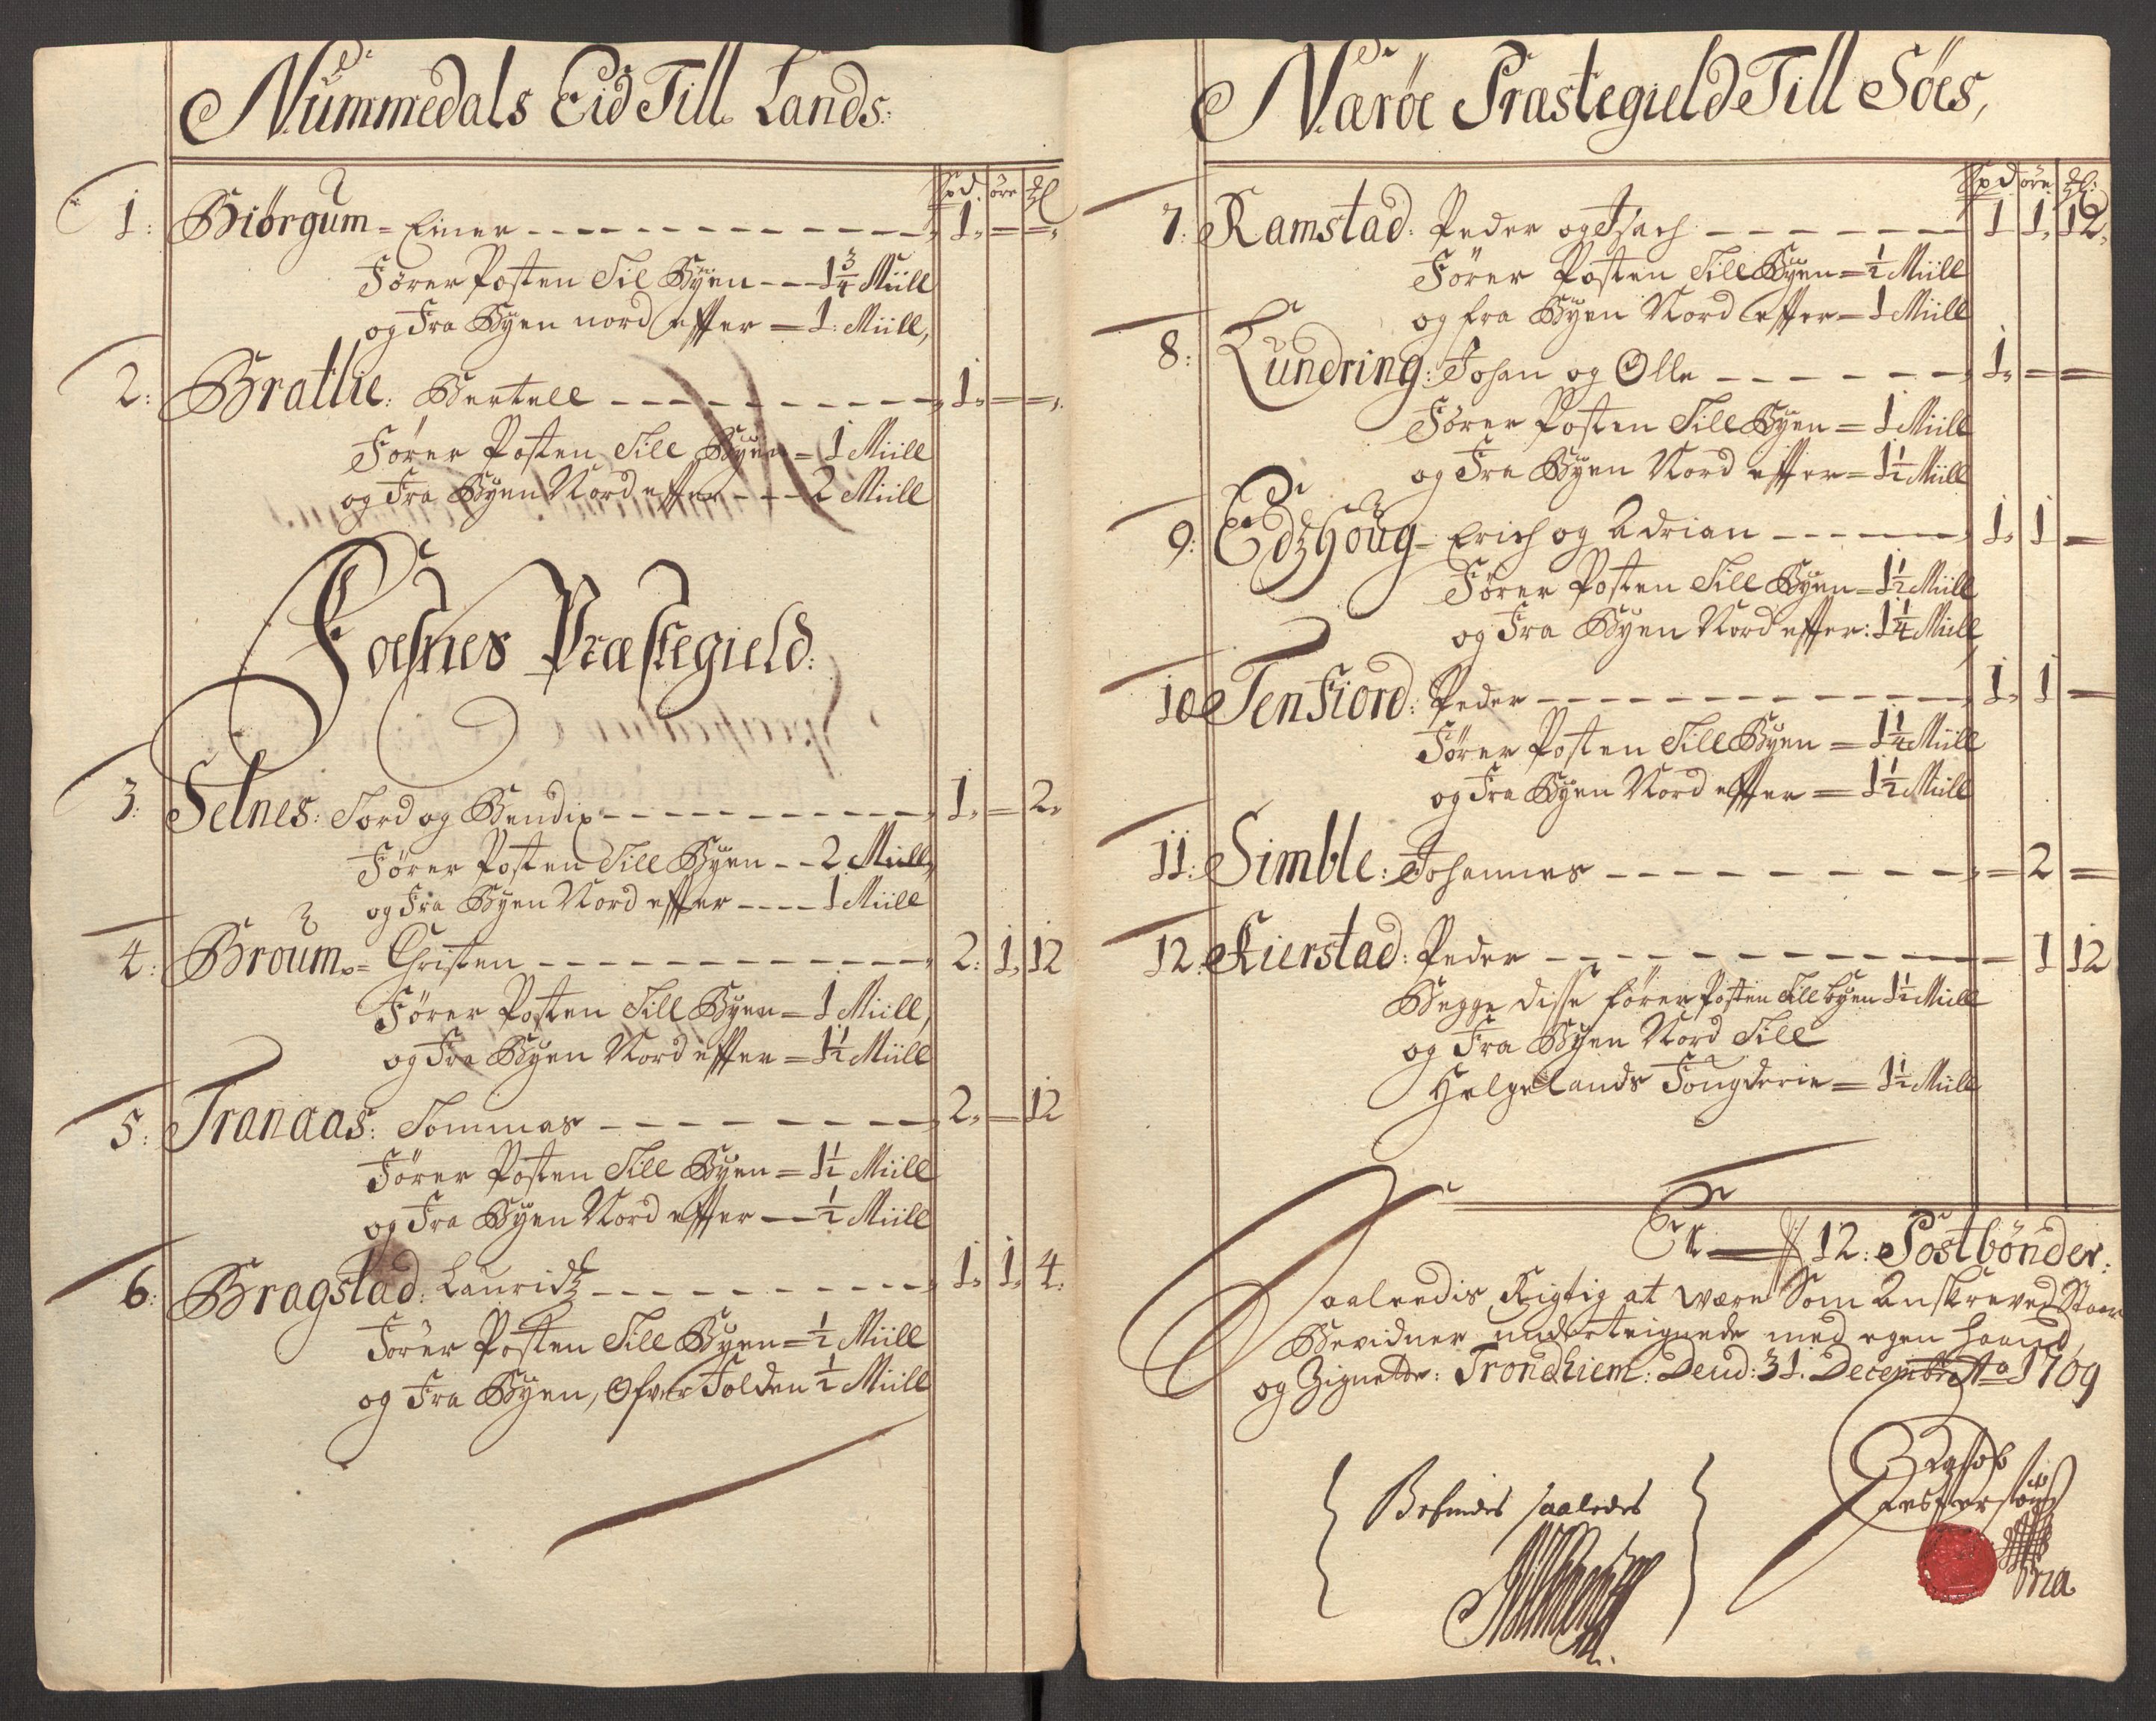 Nummedals Eid Till Lands:
Spd. öre ℳl
1: Biörgum = Einer 1, = =,
Förer Posten Til Byen 1 3/4 Miill
og Fra Byen nord effter = 1: Miill,
2: Brattlie: Bertell 1, = =,
Förer Posten Till Byen = 1 Miill
og Fra Byen Nord effter 2 Miill
Foesnes Præstegield:
3: Selnes: Tord og Bendix 1, = 2,
Förer Posten Till Byen 2 Miill,
og Fra Byen Nord effter 1 Miill
4: Broum = Christen 2: 1, 12
Förer Posten Till Byen = 1 Miill,
og Fra Byen Nord effter = 1 1/2 Miill
5: Tranaas: Tommas 2, = 12
Förer Posten Till Byen = 1 1/2 Miill
og Fra Byen Nord effter 1/2 Miill
6: Bragstad: Lauridtz 1, 1, 4.
Förer Posten Till Byen = 1/2 Miill
og Fra Byen, Ofver Folden 1/2 Miill
Næröe Præstegield Till Söes,
Spd öre
7: Ramstad: Peder og Isach 1 1, 12,
Förer Posten Till Byen = 1/2 Miill
og fra Byen Nord effter = 1 Miill
8: Lundring: Johan og Olle 1, = =
Förer Posten Till Byen = 1 Miill
og Fra Byen Nord effter = 1 1/2 Miill
9: Edzhöug = Erich og Adrian 1, 1 =
Förer Posten Till Byen = 1 1/2 Miill
og Fra Byen Nord effter: 1 1/4 Miill,
10 Tenfiord: Peder 1, 1 =
Förer Posten Till Byen = 1 1/4 Miill
og Fra Byen Nord effter = 1 1/2 Miill
11: Simble: Johannes = 2 =
12: Kierstad: Peder 1 12
Begge disse förer Posten Till byen 1 1/2 Miill
og Fra Byen Nord Till
Helgelands Fougderie = 1 1/2 Miill
Er 12: Postbönder:
Saaleedis Rigtig at være Som Anskreved Staar
Bevidner underteignede med egen haand,
og Zignette: Trondhiem: Dend: 31. Decembr: Ao 1709
Befindes saaledes